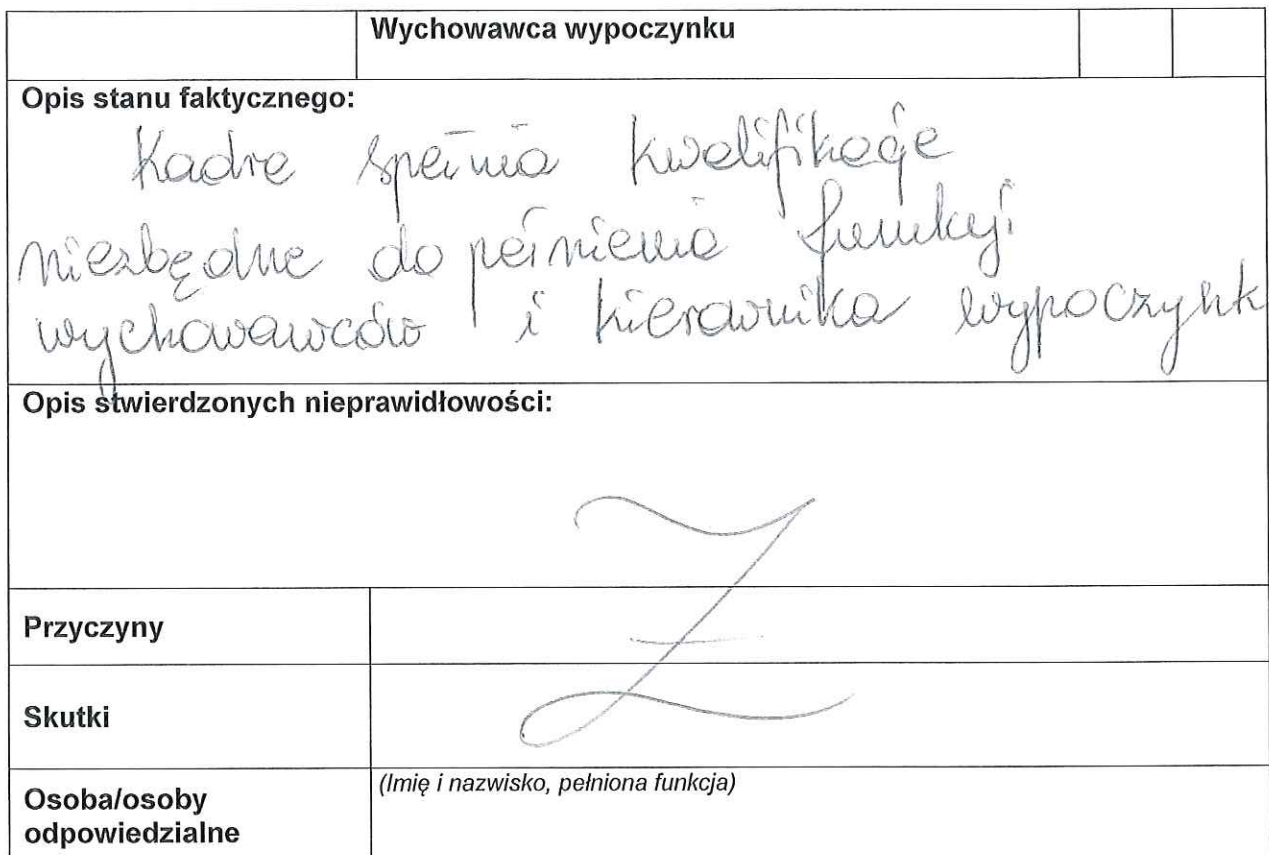 Wychowawca wypoczynku
Opis stanu faktycznego:
Kadra spełnia kwalifikacje
niezbędne do pełnienia funkcji
wychowawców i kierownika wypoczynk
Opis stwierdzonych nieprawidłowości:
Przyczyny
Skutki
Osoba/osoby
odpowiedzialne
(Imię i nazwisko, pełniona funkcja)